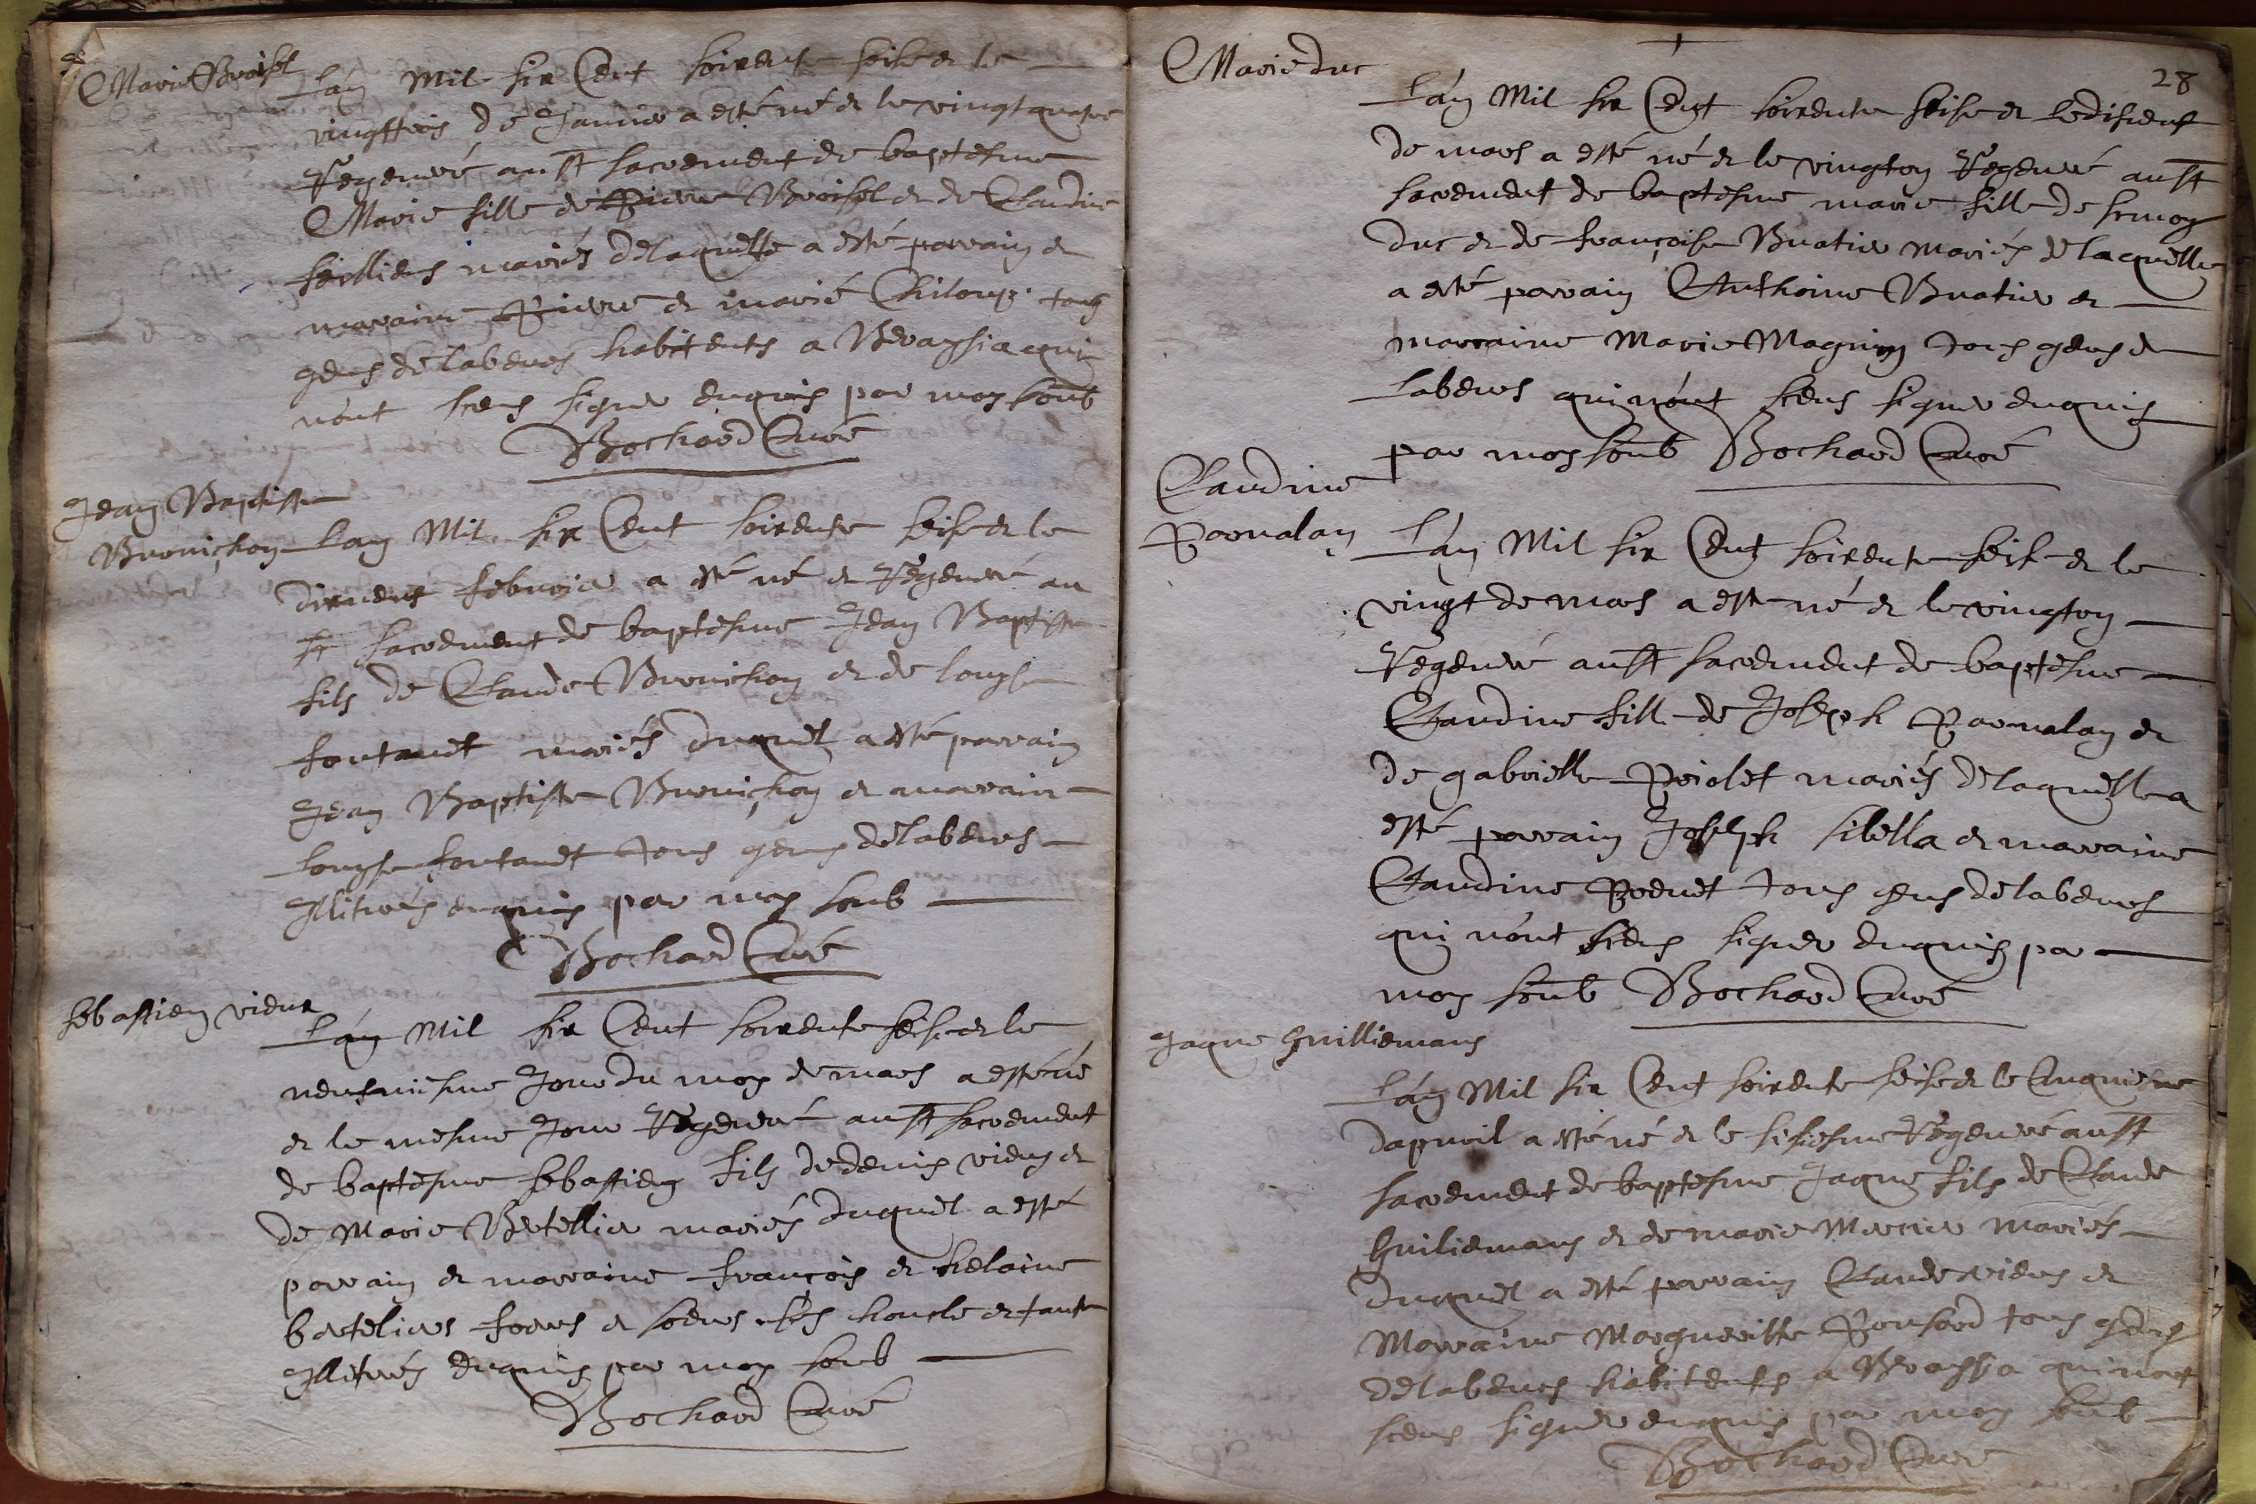 Marie Broisel
L'an Mil six Cent soixente seise et le
vingttrois de Janvier a esté né et le vingt quatre
Regenere au st sacrement de baptesme
Marie fille de Pierre Broisel et de Claudine
mariés delaquelle a esté parrain et
marraine Pierre et marie tous
gens de labeurs habitents a qui
n'ont sceus signer enquis par moy soub
Bochard Curé
Jean Baptiste
Brunichon
Lan Mil six Cent soixente seise et le
dixneuf febvrier a esté né et Regeneré au
st sacrement de baptesme Jean Baptiste
fils de Claude Brunichon et de louyse
fontanet mariés duquel a esté parrain
Jean Baptiste Brunichon et marraine
louyse fontanet tous gens de labeurs
Illitrés enquis par moy soub
Bochard Curé
sebastien vieux
L'an Mil six Cent soixente seise et le
neufviesme Jour du moy de mars a esté né
et le mesme Jour Regeneré au st sacrement
de baptesme sebastien fils de denis vieux et
de Marie Bertellier mariés duquel a esté
parrain et marraine françois et helaine
berteliers freres et soeurs ses honcle et tante
Illetrés enquis par moy soub
Bochard Curé
28
Marie duc
L'an Mil six Cent soixente seise et le diseneuf
de mars a esté né et le vington Regeneré au st
sacrement de baptesme marie fille de simon
duc et de françoise Buatier mariés de laquelle
a esté parrain Anthoine Buatier et
marraine Marie Magnin tous gens de
labeurs qui n'ont sceus signer enquis
par moy soub Bochard Curé
Claudine
Parnalan
L'an Mil six Cent soixente seise et le
vingt de mars a esté né et le vington
Regeneré au st sacrement de baptesme
Claudine fille de Joseph Parnalan et
de gabrielle Priolet mariés delaquelle a
esté parrain Joseph sibella et marraine
Claudine Poenet tous gens delabeurs
qui n'ont sceus signer enquis par
moy soub Bochard Curé
Jaque Guilliemans
L'an Mil six Cent soixente seise et le Cinquiesme
dapvril a esté né et le sisiesme Regeneré au st
sacrement de baptesme Jaque fils de Claude
Guiliemans et de marie Mercier mariés
duquel a esté parrain Claude vieux et
Marraine Margueritte Ponsard tous gens
delabeurs habitents a qui nont
sceus signer enquis par moy soub
Bochard Curé